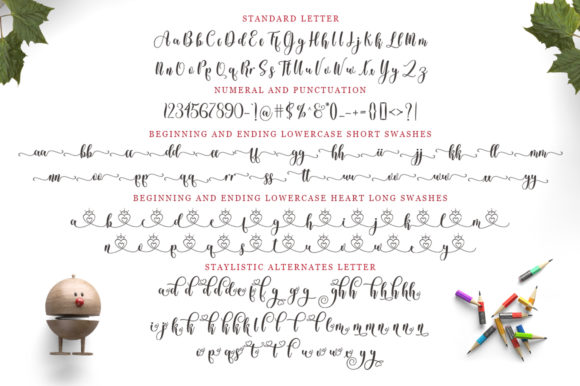 STANDARD LETTER
Aa Bb Cc Dd Ee Ff Gg Hh Ii Jj Kk Ll Mm
Nn Oo Pp Qq Rr Ss Tt Uu Vv Ww Xx Yy Zz
NUMERAL AND PUNCTUATION
1234567890-!@#$%^&*()_-+={}[]<>?|
BEGINNING AND ENDING LOWERCASE SHORT SWASHES
aa bb cc dd ee ff gg hh ii jj kk ll mm
nn oo pp qq rr ss tt uu vv ww xx yy
BEGINNING AND ENDING LOWERCASE HEART LONG SWASHES
a b c d e f g h i j k l m
n o p q s t u v w y
STAYLISTIC ALTERNATES LETTER